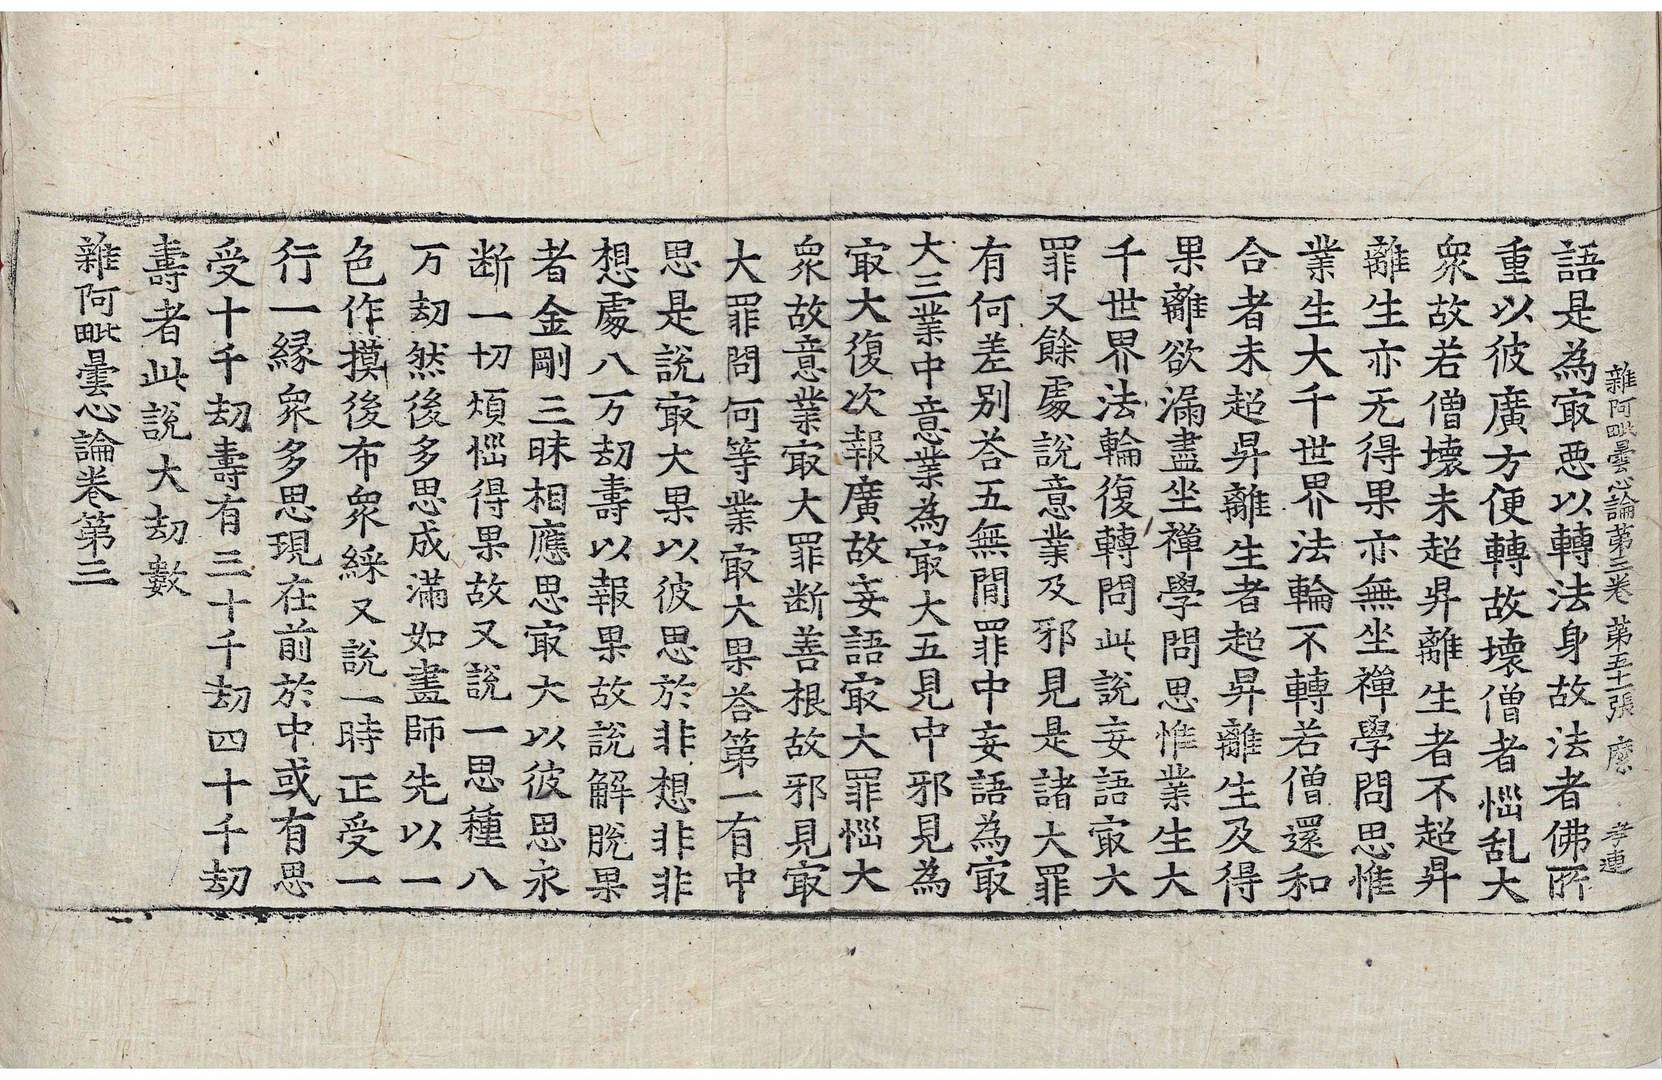 雜阿毗曇心論第三卷 第五十張 麼 孝連
語是為㝡惡以轉法身故法者佛所
重以彼廣方便轉故壞僧者惱乱大
衆故若僧壞未超昇離生者不超昇
離生亦无得果亦無坐禪學問思惟
業生大千世界法輪不轉若僧還和
合者未超昇離生者超昇離生及得
果離欲漏盡坐禪學問思惟業生大
千世界法輪復轉問此說妄語㝡大
罪又餘處說意業及邪見是諸大罪
有何差別荅五無間罪中妄語為㝡
大三業中意業為㝡大五見中邪見為
㝡大復次報廣故妄語㝡大罪惱大
衆故意業㝡大罪断善根故邪見㝡
大罪問何等業㝡大果荅第一有中
思是說㝡大果以彼思於非想非非
想處八万劫壽以報果故說解脫果
者金剛三昧相應思㝡大以彼思永
断一切煩惱得果故又說一思種八
万劫然後多思成滿如畫師先以一
色作摸後布衆綵又說一時正受一
行一緣衆多思現在前於中或有思
受十千劫壽有三十千劫四十千劫
壽者此說大劫數
雜阿毗曇心論卷第三